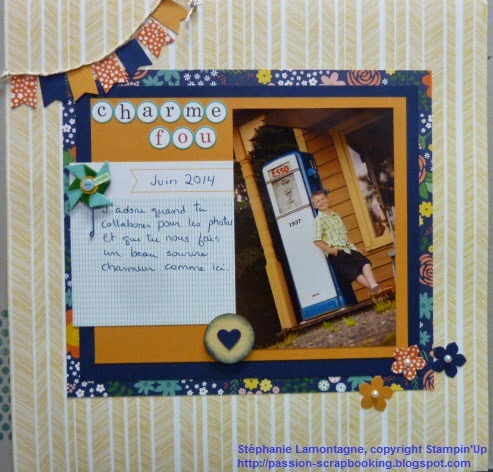 charme
fou
Juin 2014
J'adore quand tu
collabores pour les photos
et que tu nous fais
un beau sourire
charmeur comme ici.
ESSO
1957
Stéphanie Lamontagne, copyright Stampin'Up
http://passion-scrapbooking.blogspot.com